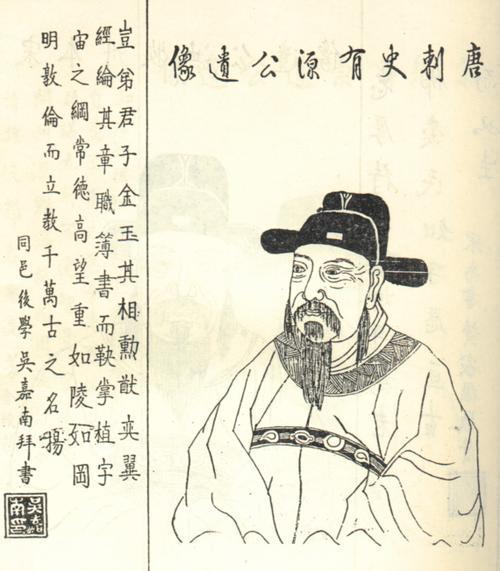 唐刺史有源公遺像
豈弟君子金玉其相勳猷奕翼
經綸其章職簿書而鞅掌植宇
宙之綱常德高望重如陵如岡
明敦倫而立教千萬古之名揚
同邑後學吳嘉南拜書
吳嘉南印